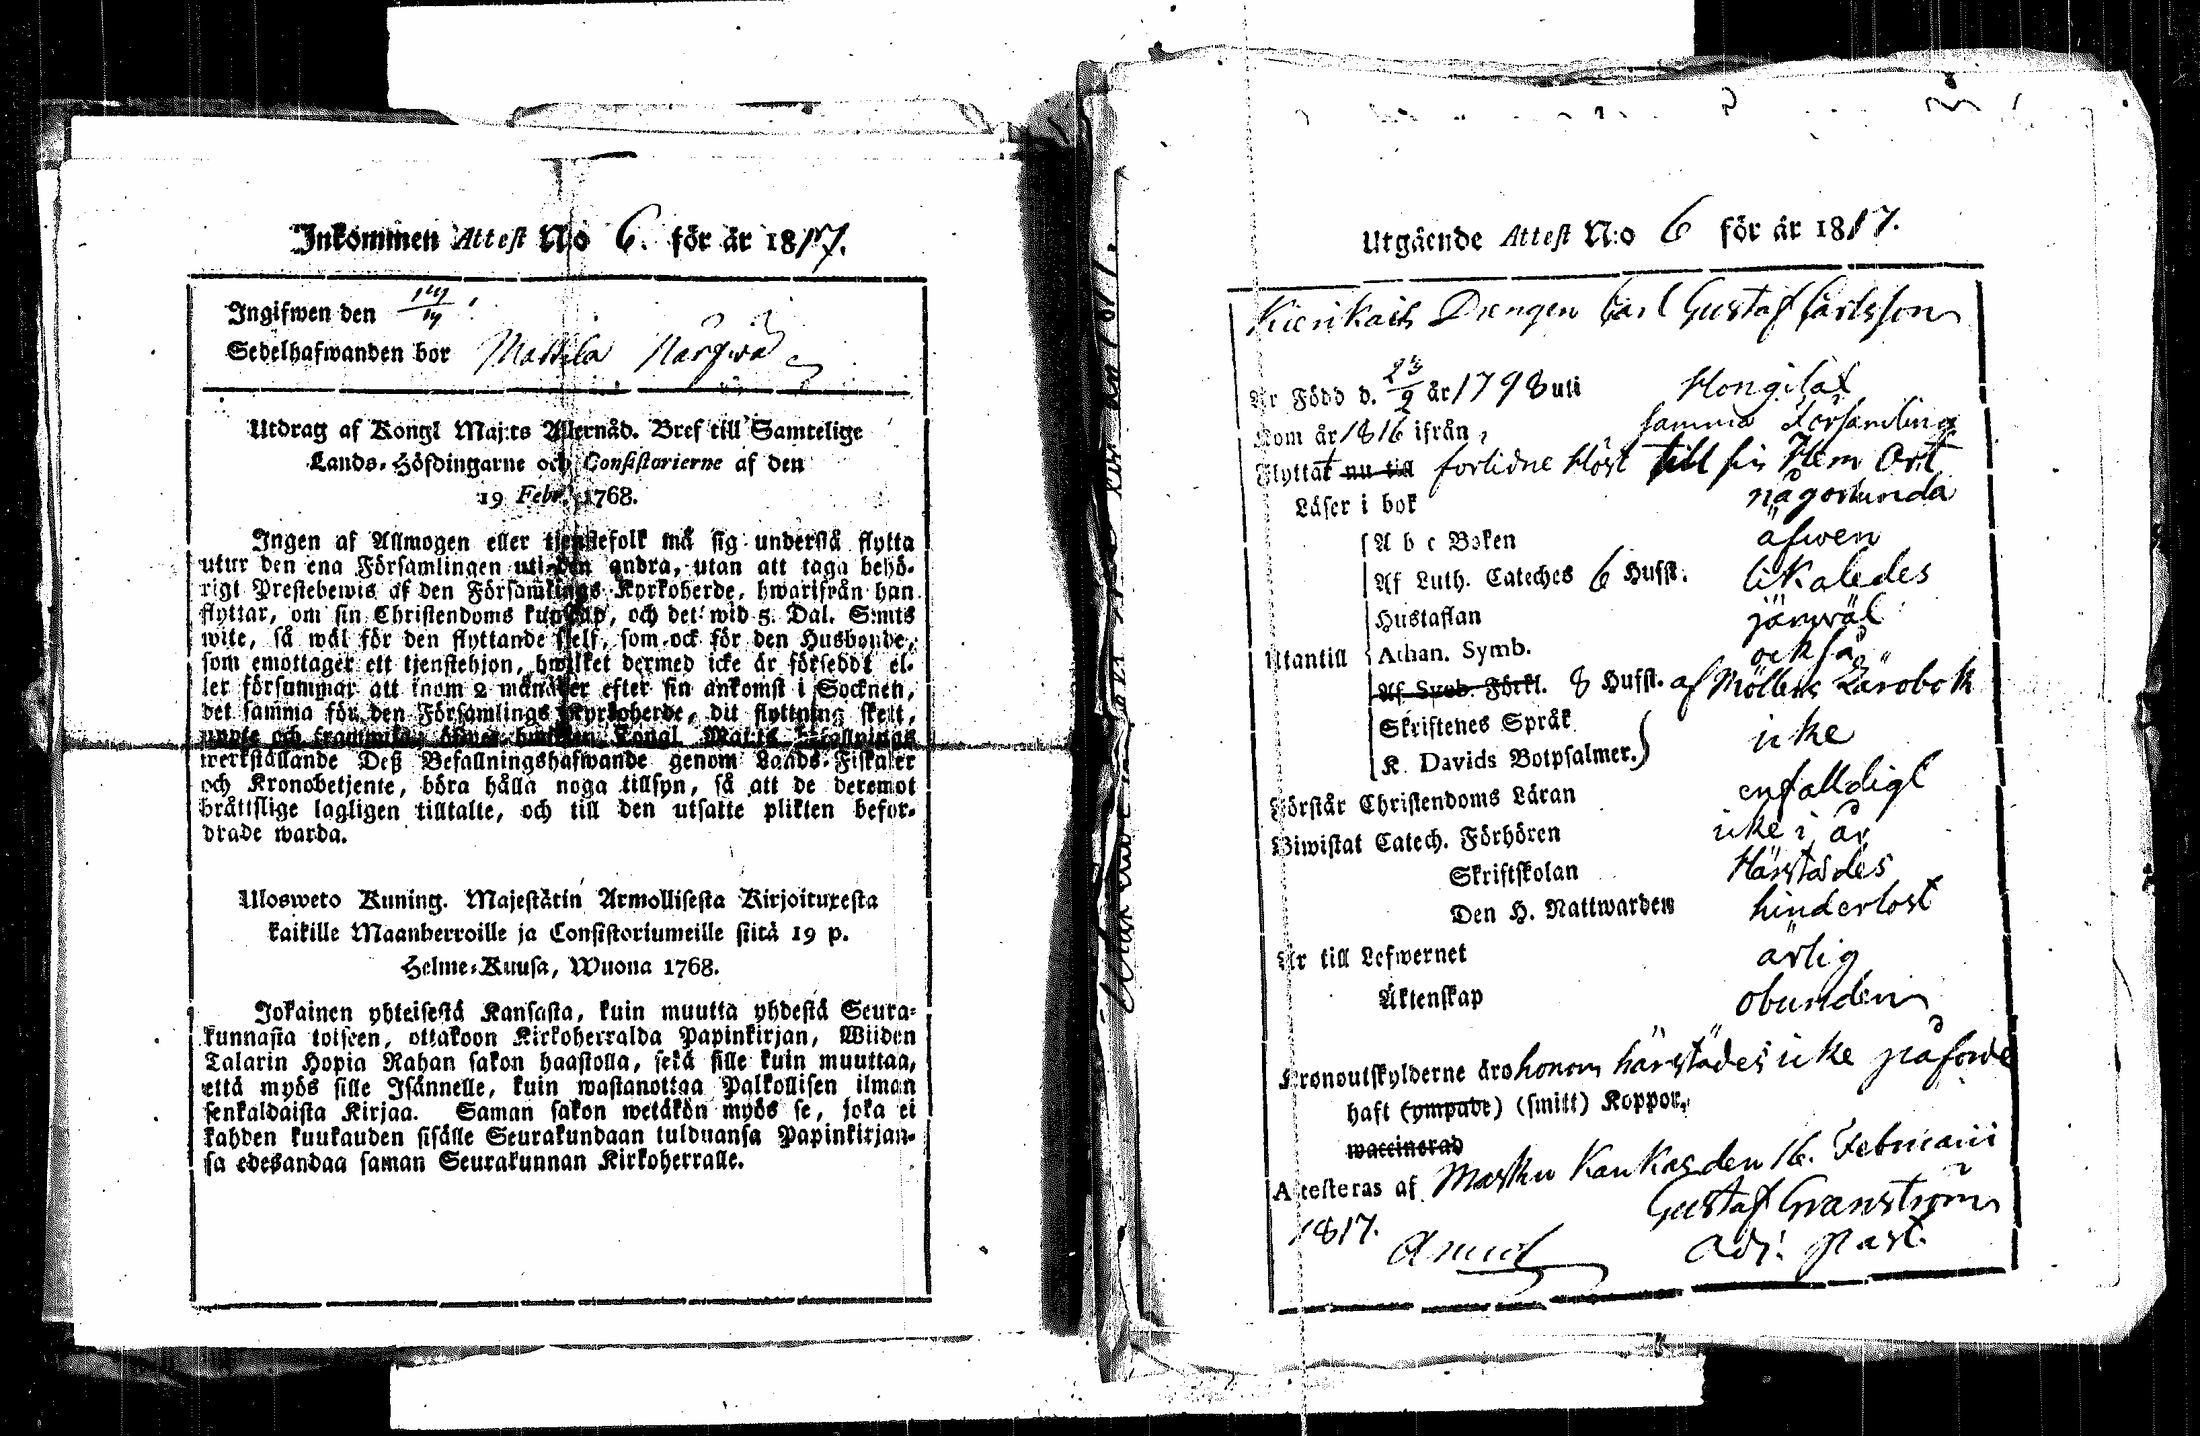 Inkommen Attest N:o 6. för år 1817.
Ingifwen den
Sedelhafwanden bor Mattila
Utdrag af Kongl Maj:ts Allernåd. Bref till Samtelige
Lands-Höfdingarne och Consistorierne af den
19 Febr. 1768.
Ingen af Allmogen eller tjenstefolk må sig understå flytta
utur den ena Församlingen uti den andra, utan att taga behö-
rigt Prestebewis af den Församlings Kyrkoherde, hwarifrån han
flyttar, om sin Christendoms kunskap, och det wid 5. Dal. S:mts
wite, så wäl för den flyttande sjelf, som ock för den Husbonde,
som emottager ett tjenstehjon, hwilket dermed icke är förseddt el-
ler försummar att inom 2 månader efter sin ankomst i Socknen,
det samma för den Församlings Kyrkoherde, dit flyttning skett,
Kongl Maj:ts
werkställande Deß Befallningshafwande genom Lands-Fiskaler
och Kronobetjente, böra hålla noga tillsyn, så att de deremot
bråttslige lagligen tilltalte, och till den utsatte plikten befor-
drade warda.
Ulosweto Kuning. Majestätin Armollisesta Kirjoituxesta
kaikille Maanherroille ja Consistoriumeille siitä 19 p.
Helme-Kuusa, Wuona 1768.
Jokainen yhteisestä Kansasta, kuin muutta yhdestä Seura-
kunnasta toiseen, ottakoon Kirkoherralda Papinkirjan, Wiiden
Talarin Hopia Rahan sakon haastolla, sekä sille kuin muuttaa,
että myös sille Isännelle, kuin wastanottaa Palkollisen ilman
senkaldaista Kirjaa. Saman sakon wetäkön myös se, joka ei
kahden kuukauden sisälle Seurakundaan tulduansa Papinkirjan-
sa edesandaa saman Seurakunnan Kirkoherralle.
Utgående Attest N:o 6 för år 1817.
Drengen Carl Gustaf Carlsson
Är Född d. 23/9 år 1798 uti Hongilax
Kom år 1816 ifrån samma Församling
Flyttat nu till förlidne Höst till sin Hem Ort
Läser i bok någorlunda
A b c Boken äfwen
Af Luth. Cateches 6 Hufst. likaledes
Hustaflan jämwäl
Utantill Athan. Symb. också
Af Sweb. Förkl. 8 Hufst. af Möllers Lärobok
Skriftenes Språk
K. Davids Botpsalmer. icke
Förstår Christendoms Läran enfalldigt
Biwistat Catech. Förhören icke i år
Skriftskolan Härstädes
Den H. Nattwarden hinderlöst
Är till Lefwernet ärlig
Äktenskap obunden
Kronoutskylderne äro honom härstädes icke påförde
haft (ympade) (smitt) Koppor.
waccinerad
Attesteras af Masku Kankas den 16. Februarii
1817. Gustaf Granström
Adj. Past.